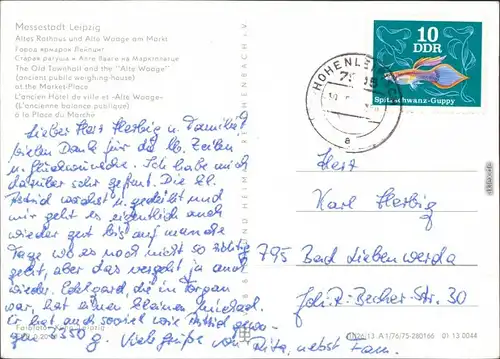 Messestadt Leipzig
Altes Rathaus und Alte Waage am Markt
Город ярмарок Лейпциг
Старая ратуша и Алте Вааге на Маркетплаце
The Old Townhall and the "Alte Waage"
(ancient public weighing-house)
at the Market-Place
L'ancien Hôtel de ville et «Alte Waage»
(L'ancienne balance publique)
à la Place du Marché
10
DDR
Spitzschwanz-Guppy
HOHENLE
a
Lieber Herr Herbig u. Familie!
Vielen Dank für die lb. Zeilen
u. Glückwünsche. Ich habe mich
darüber sehr gefreut. Die kl.
Astrid wächst u. gedeiht und
mir geht es eigentlich auch
wieder gut bis auf manche
Tage wo es noch nicht so richtig
geht, aber das vergeht ja auch
wieder. Edelgard, die in Torgau
war, hat einen kleinen
Er hat auch soviel wie Astrid gewo-
gen 3350 g. Viele Grüße von Rita, nebst Fam.
Herr
Karl Herbig
795 Bad Liebenwerda
Joh.-R.-Becher-Str. 30
REICHENBACH i. V.
Farbfoto: Leipzig
A 1/76/75-280166 01 13 0044